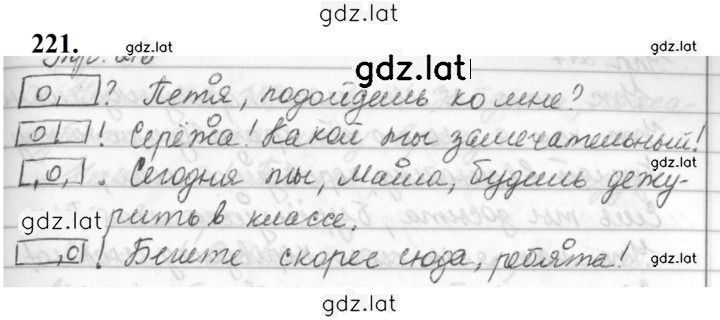 gdz.lat
221.
gdz.lat
gdz.lat
gdz.lat
[о, ]? Петя, подойдёшь ко мне?
[о! ]! Серёжа! Какой ты замечательный!
gdz.lat
[ ,о, ]. Сегодня ты, Маша, будешь дежу-
gdz.lat
рить в классе.
[ ,о]! Бегите скорее сюда, ребята!
gdz.lat
gdz.lat